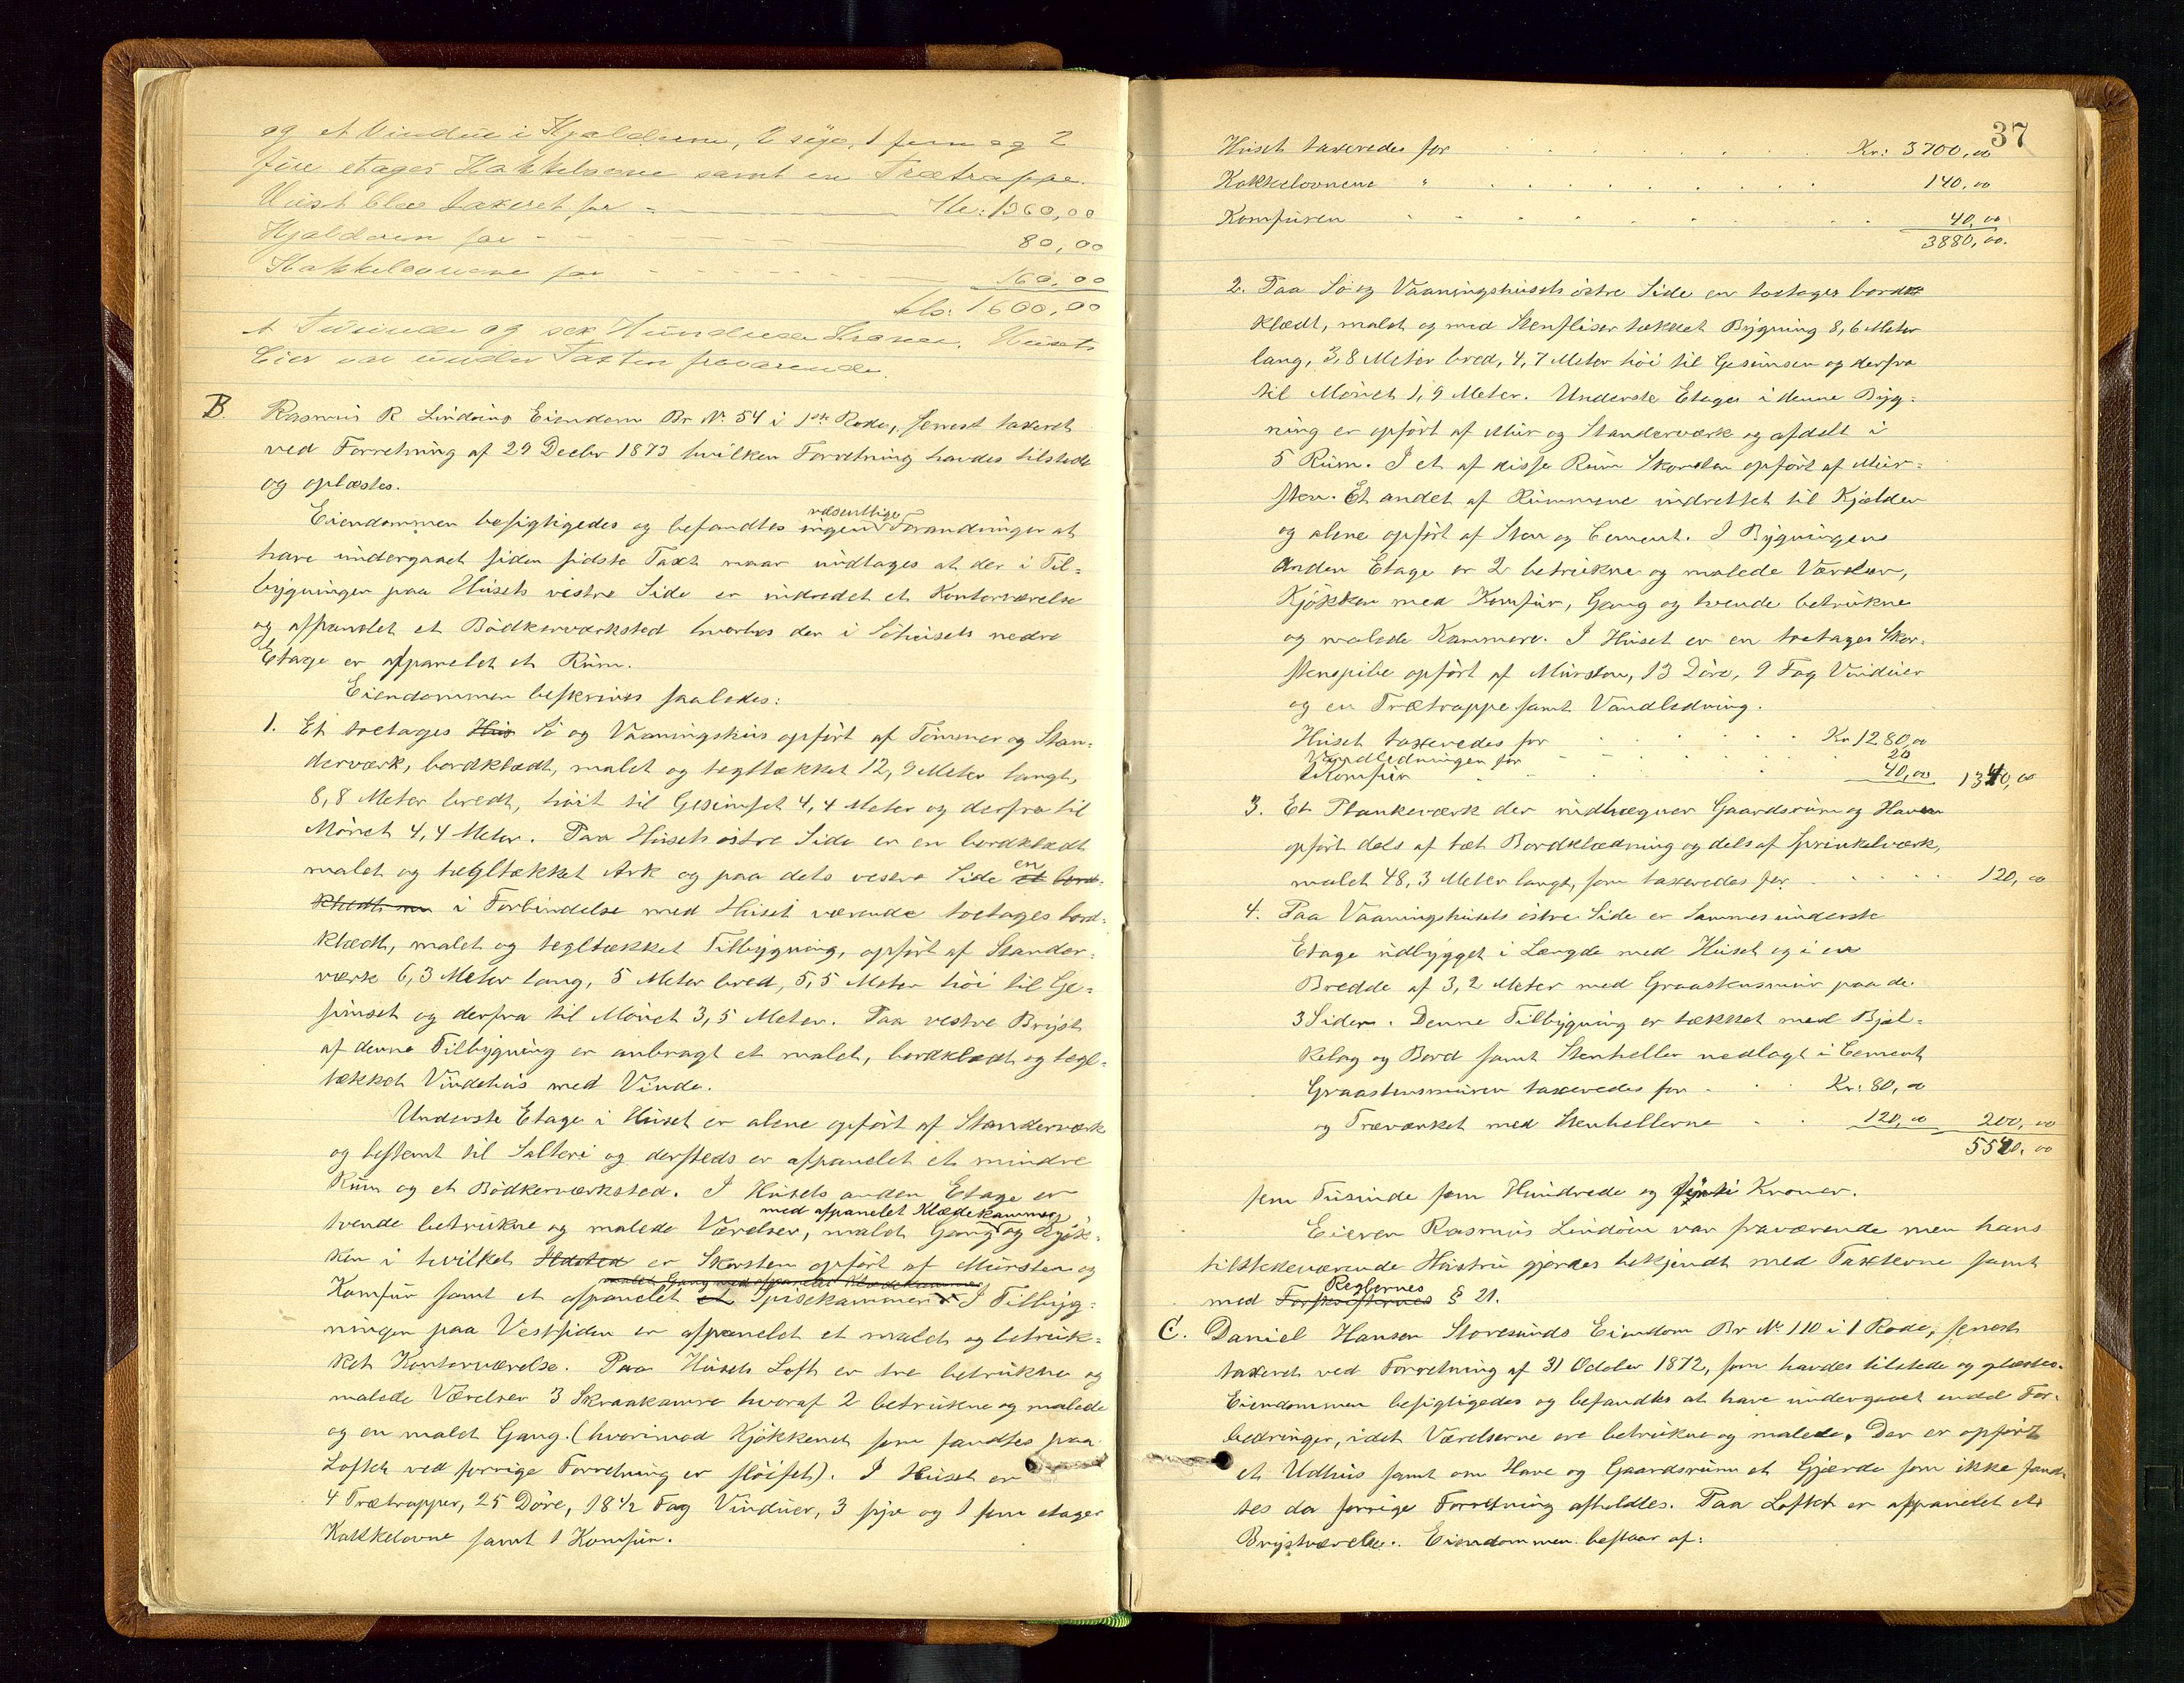 og et Vindue i Kjælderen, 2 syv, 1 fem og 2
fire etages Kakkelovne samt en Trætrappe.
Huset blev taxeret for - Kr: 1360,00
Kjælderen for - 80,00
Kakkelovnene for - 160,00
Kr: 1600,00
et Tusinde og sex Hundrede Kroner. Husets
Eier var under Taxten fraværende.
B. Rasmus R Lindøens Eiendom Br No 54 i 1ste Rode, senest taxeret
ved Forretning af 29 Decbr 1873 hvilken Forretning havdes tilstede
og oplæstes.
Eiendommen besigtigedes og befandtes ingen væsentlige Forandringer at
have undergaaet siden sidste Taxt naar undtages at der i Til=
bygningen paa Husets vestre Side er indredet et Kontorværelse
og afpanelet et Bødkerværksted hvorhos der i Søhusets nedre
Etage er afpanelet et Rum.
Eiendommen beskrives saaledes:
1. Et toetages Hus Sø og Vaaningshus opført af Tømmer og Stan=
derværk, bordklædt, malet og tegltækket 12,9 Meter langt,
8,8 Meter bredt, høit til Gesimset 4,4 Meter og derfra til
Mønet 4,4 Meter. Paa Husets østre Side er en bordklædt
malet og tegltækket Ark og paa dets vestre Side et en bord-
klædt i Forbindelse med Huset værende toetages bord-
klædt, malet og tegltækket Tilbygning, opført af Stander=
værk 6,3 Meter lang, 5 Meter bred, 5,5 Meter høi til Ge=
simset og derfra til Mønet 3,5 Meter. Paa vestre Bryst
af denne Tilbygning er anbragt et malet, bordklædt og tegl=
tækket Vindehus med Vinde.
Underste Etage i Huset er alene opført af Standerværk
og bestemt til Salteri og dersteds er afpanelet et mindre
Rum og et Bødkerværksted. I Husets anden Etage er
med afpanelet Klædekammer
tvende betrukne og malede Værelser, malet Gang og Kjøk-
ken i hvilket Ildsted er Skorsten opført af Mursten og
malet Gang med afpanelet Klædekammer
Komfur samt et afpanelet et Spisekammer. I Tilbyg=
ningen paa Vestsiden er afpanelet et malet og betruk=
ket Kontorværelse. Paa Husets Loft er tre betrukne og
malede Værelser 3 Skraakamre hvoraf 2 betrukne og malede
og en malet Gang. (hvorimod Kjøkkenet som fandtes paa
Loftet ved forrige Forretning er sløifet). I Huset er
4 Trætrapper, 25 Døre, 18 1/2 Fag Vinduer, 3 syv og 1 fem etages
Kakkelovne samt 1 Komfur.
37
Huset taxeredes for Kr: 3700,00
Kakkelovnene " 140,00
Komfuren 40,00
3880,00.
2. Paa Sø og Vaaningshusets østre Side en toetages bord
klædt, malet og med Stenfliser tækket Bygning 8,6 Meter
lang, 3,8 Meter bred, 4,7 Meter høi til Gesimsen og derfra
til Mønet 1,9 Meter. Underste Etage i denne Byg=
ning er opført af Mur og Standerværk og afdelt i
5 Rum. I et af disse Rum Skorsten opført af Mur=
sten. Et andet af Rummene indrettet til Kjælder
og alene opført af Sten og Cement. I Bygningens
Anden Etage er 2 betrukne og malede Værelser,
Kjøkken med Komfur, Gang og tvende betrukne
og malede Kammere. I Huset er en toetages Skor=
stenspibe opført af Mursten, 13 Døre, 9 Fag Vinduer
og en Trætrappe samt Vandledning.
Huset taxeredes for Kr 1280,00
Vandledningen for 20
Komfur 40,00 1340,00
3. Et Plankeværk der indhegner Gaardsrum og Haven
opført dels af tæt Bordklædning og dels af Sprinkelværk,
malet 48,3 Meter langt, som taxeredes for 120,00
4. Paa Vaaningshusets østre Side er Sammes underste
Etage udbygget i Længde med Huset og i en
Bredde af 3,2 Meter med Graastensmur paa de
3 Sider. Denne Tilbygning er tækket med Bjel=
kelag og Bord samt Stenheller nedlagt i Cement
Graastensmuren taxeredes for Kr: 80,00
og Træværket med Stenhellerne 120,00 200,00
5540,00
fem Tusinde fem Hundrede og Kroner.
Eieren Rasmus Lindøen var fraværende men hans
tilstedeværende Hustru gjordes bekjendt med Taxterne samt
med Forskrifternes Reglernes § 21.
C. Daniel Hansen Storesunds Eiendom Br No 110 i 1 Rode, senest
taxeret ved Forretning af 31 October 1872, som havdes tilstede og oplæstes.
Eiendommen besigtigedes og befandtes at have undergaaet endel For=
bedringer, idet Værelserne ere betrukne og malede. Der er opført
et Udhus samt om Have og Gaardsrum et Gjærde som ikke fand=
tes da forrige Forretning afholdtes. Paa Loftet er afpanelet et
Brystværelse. Eiendommen bestaar af: